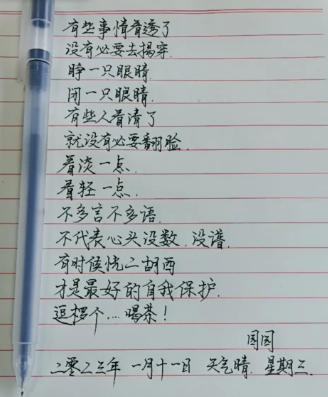 有些事情看透了
没有必要去揭穿.
睁一只眼睛
闭一只眼睛.
有些人看清了
就没有必要翻脸.
看淡一点.
看轻一点.
不多言不多语.
不代表心头没数.没谱.
有时候恍二胡西
才是最好的自我保护.
逗楞个...喝茶!
国国
二零二三年 一月十一日 天气晴.星期三.